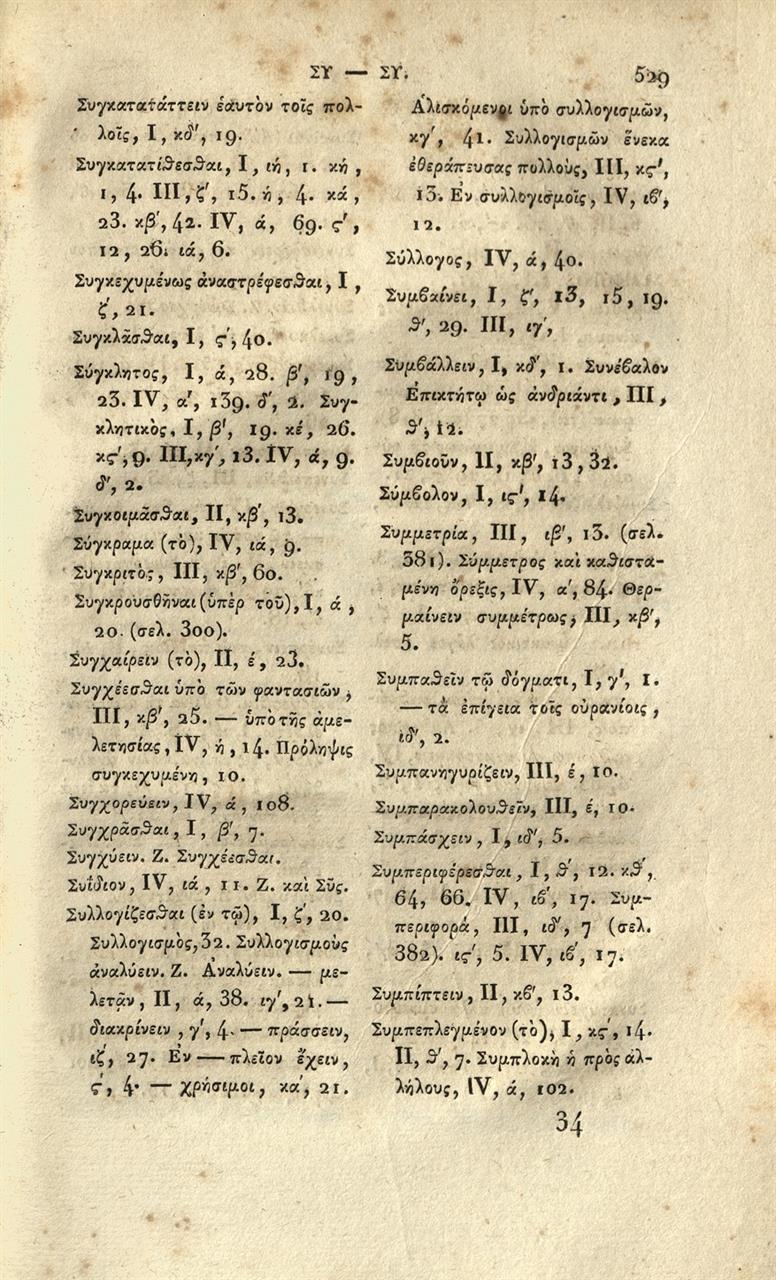 ΣΥ — ΣΥ. 529
Συγκατατάττειν ἑαυτὸν τοῖς πολ-
λοῖς, I, κδ', 19.
Συγκατατίθεσθαι, I, ιή, 1. κή,
1, 4. III, ζ', 15. ή, 4. κά,
23. κβ', 42. IV, ά, 69. ς',
12, 26. ιά, 6.
Συγκεχυμένως ἀναστρέφεσθαι, I,
ζ', 21.
Συγκλᾶσθαι, I, ς', 40.
Σύγκλητος, I, ά, 28. β', 19,
23. IV, α', 139. δ', 2. Συγ-
κλητικὸς, I, β', 19. κέ, 26.
κς', 9. III, κγ', 13. IV, ά, 9.
δ', 2.
Συγκοιμᾶσθαι, II, κβ', 13.
Σύγκραμα (τὸ), IV, ιά, 9.
Συγκριτὸς, III, κβ', 60.
Συγκρουσθῆναι (ὑπὲρ τοῦ), I, ά,
20. (σελ. 300).
Συγχαίρειν (τὸ), II, έ, 23.
Συγχέεσθαι ὑπὸ τῶν φαντασιῶν,
III, κβ', 25. — ὑπὸ τῆς ἀμε-
λετησίας, IV, ή, 14. Πρόληψις
συγκεχυμένη, 10.
Συγχορεύειν, IV, ά, 108.
Συγχρᾶσθαι, I, β', 7.
Συγχύειν. Ζ. Συγχέεσθαι.
Συΐδιον, IV, ιά, 11. Ζ. καὶ Σῦς.
Συλλογίζεσθαι (ἐν τῷ), I, ζ', 20.
Συλλογισμὸς, 32. Συλλογισμοὺς
ἀναλύειν. Ζ. Ἀναλύειν. — με-
λετᾷν, II, ά, 38. ιγ', 21. —
διακρίνειν, γ', 4. — πράσσειν,
ιζ', 27. Ἐν — πλεῖον ἔχειν,
ς', 4. — χρήσιμοι, κα', 21.
Ἁλισκόμενοι ὑπὸ συλλογισμῶν,
κγ', 41. Συλλογισμῶν ἕνεκα
ἐθεράπευσας πολλοὺς, III, κς',
13. Ἐν συλλογισμοῖς, IV, ιβ',
12.
Σύλλογος, IV, ά, 40.
Συμβαίνει, I, ζ', 13, 15, 19.
θ', 29. III, ιγ',
Συμβάλλειν, I, κδ', 1. Συνέβαλον
Ἐπικτήτῳ ὡς ἀνδριάντι, III,
θ', 12.
Συμβιοῦν, II, κβ', 13, 32.
Σύμβολον, I, ις', 14.
Συμμετρία, III, ιβ', 13. (σελ.
381). Σύμμετρος καὶ καθιστα-
μένη ὄρεξις, IV, α', 84. Θερ-
μαίνειν συμμέτρως, III, κβ',
5.
Συμπαθεῖν τῷ δόγματι, I, γ', 1.
— τὰ ἐπίγεια τοῖς οὐρανίοις,
ιδ', 2.
Συμπανηγυρίζειν, III, έ, 10.
Συμπαρακολουθεῖν, III, έ, 10.
Συμπάσχειν, I, ιδ', 5.
Συμπεριφέρεσθαι, I, θ', 12. κθ',
64, 66. IV, ιβ', 17. Συμ-
περιφορά, III, ιδ', 7 (σελ.
382). ις', 5. IV, ιβ', 17.
Συμπίπτειν, II, κβ', 13.
Συμπεπλεγμένον (τὸ), I, κς', 14.
II, θ', 7. Συμπλοκὴ ἡ πρὸς ἀλ-
λήλους, IV, ά, 102.
34